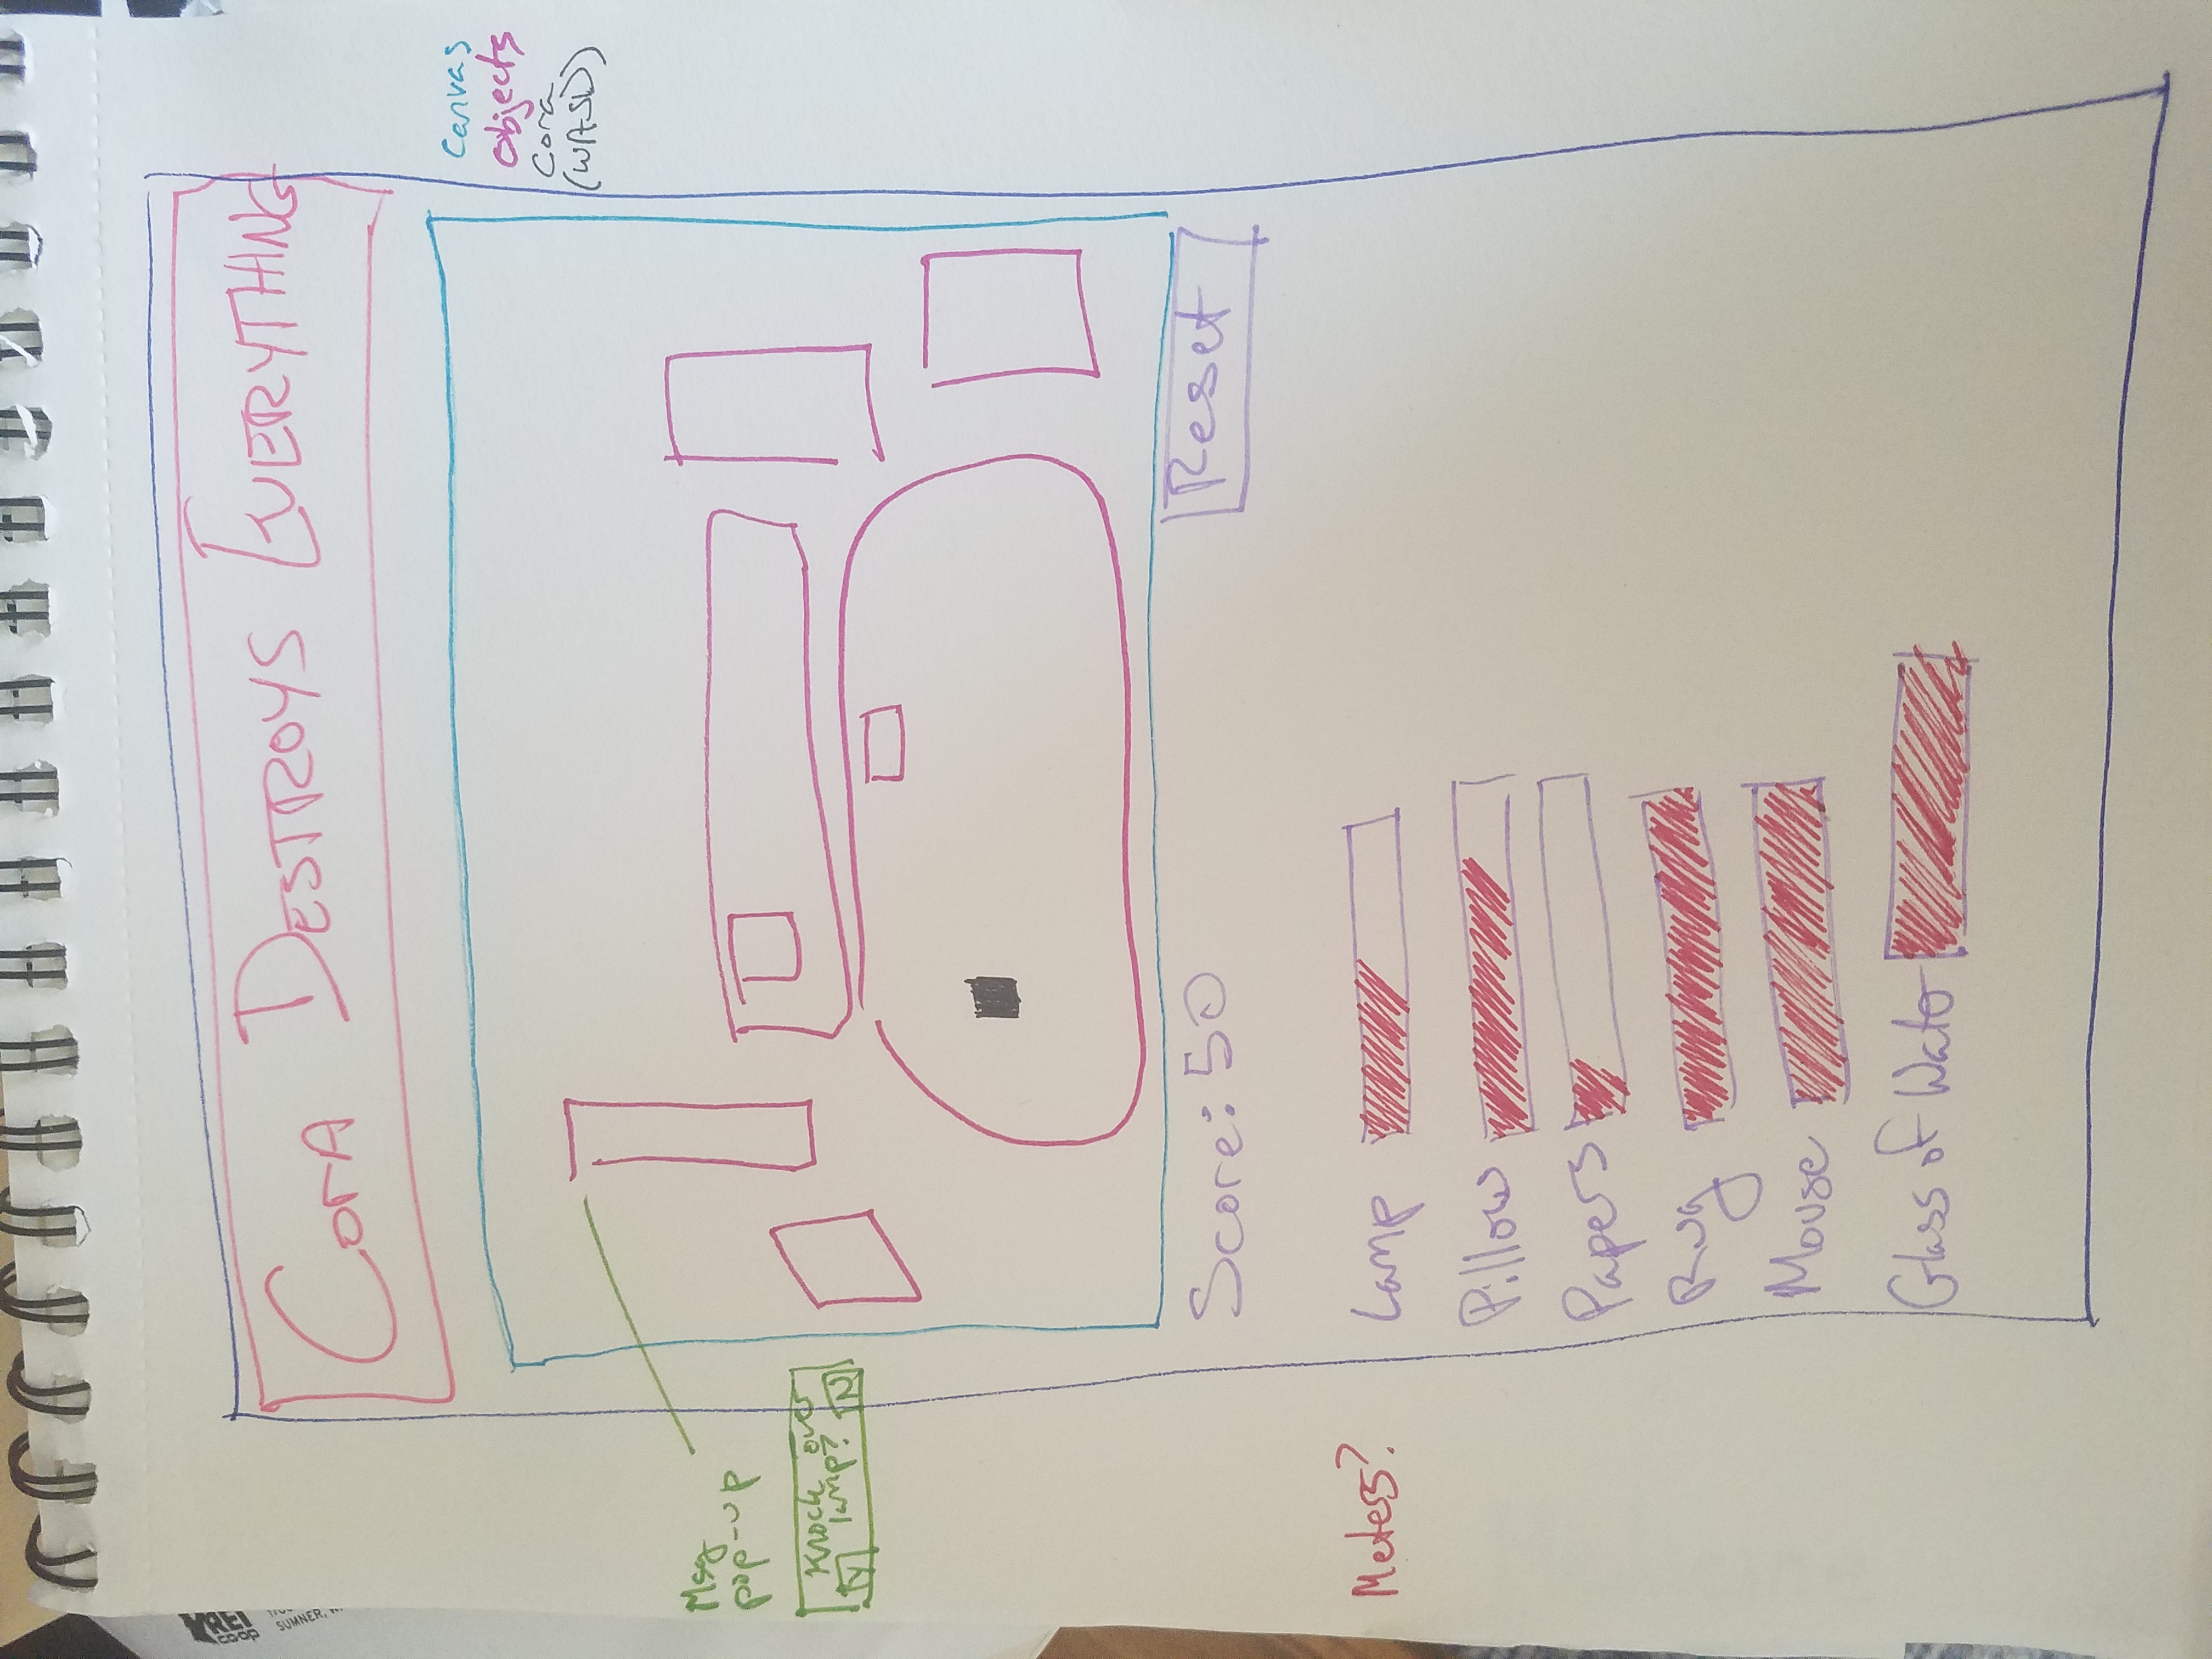 CorA DESTROYS EVERYTHING
Canvas
Objects
Cora
(WASD)
Msg
pop-up
Knock over
lamp?
Y N
Score: 50
Reset
Meters?
Lamp
Pillow
Papers
Rug
Mouse
Glass of Water
REI
co-op
SUMNER,